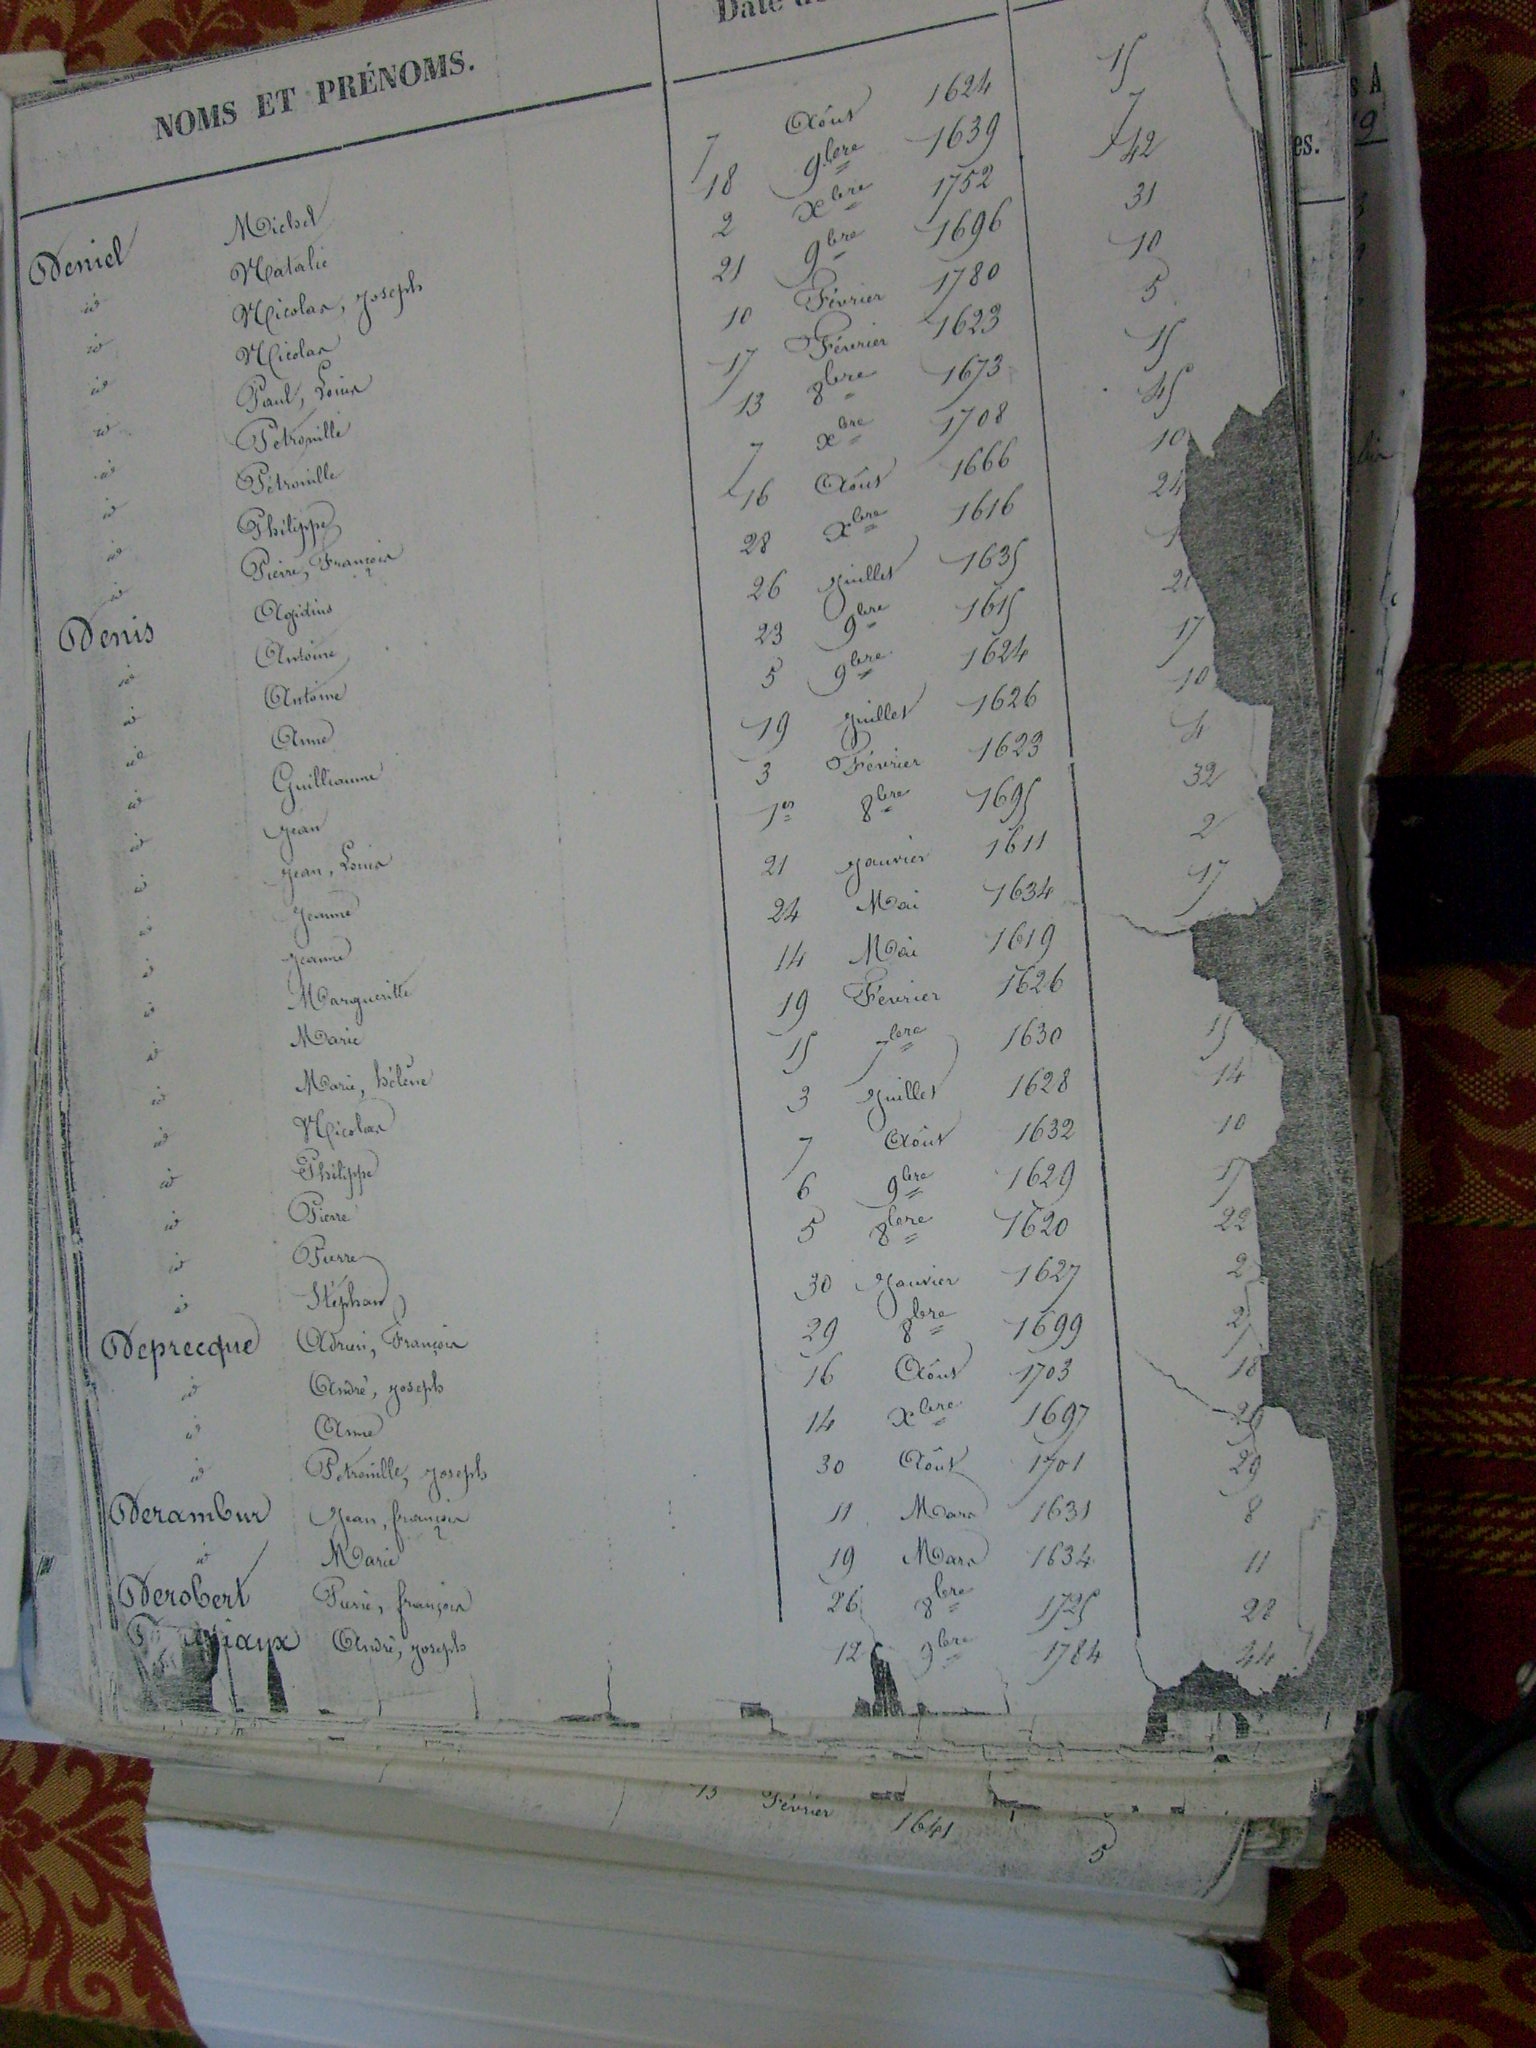 NOMS ET PRÉNOMS. Date
Deniel Michel 7 Aôut 1624 15
id Natalie 18 9bre 1639 7
id Nicolas, Joseph 2 Xbre 1752 42
id Nicolas 21 9bre 1696 31
id Paul, Louis 10 Février 1780 10
id Petronille 17 Février 1623 5
id Pétronille 13 8bre 1673 15
id Philippe 7 Xbre 1708 45
id Pierre, François 16 Aôut 1666 10
Denis Agidius 28 Xbre 1616 24
id Antoine 26 Juillet 1635
id Antoine 23 9bre 1615 21
id Anne 5 9bre 1624 17
id Guilliaume 19 Juillet 1626 10
id Jean 3 Février 1623 4
id Jean, Louis 1er 8bre 1695 32
id Jeanne 21 Janvier 1611 2
id Jeanne 24 Mai 1634 17
id Margueritte 14 Mai 1619
id Marie 19 Février 1626
id Marie, hélène 15 7bre 1630 15
id Nicolas 3 Juillet 1628 14
id Philippe 7 Aôut 1632 10
id Pierre 6 9bre 1629 17
id Pierre 5 8bre 1620 22
id Stéphan 30 Janvier 1627 2
Deprecque Adrien, François 29 8bre 1699 2
id André, joseph 16 Aôut 1703 18
id Anne 14 Xbre 1697 26
id Petronille, joseph 30 Aôut 1701 29
Derambur Jean, françois 11 Mars 1631 8
id Marie 19 Mars 1634 11
Derobert Pierre, françois 26 8bre 1725 22
André, joseph 12 9bre 1784 44
13 Février 1641 5